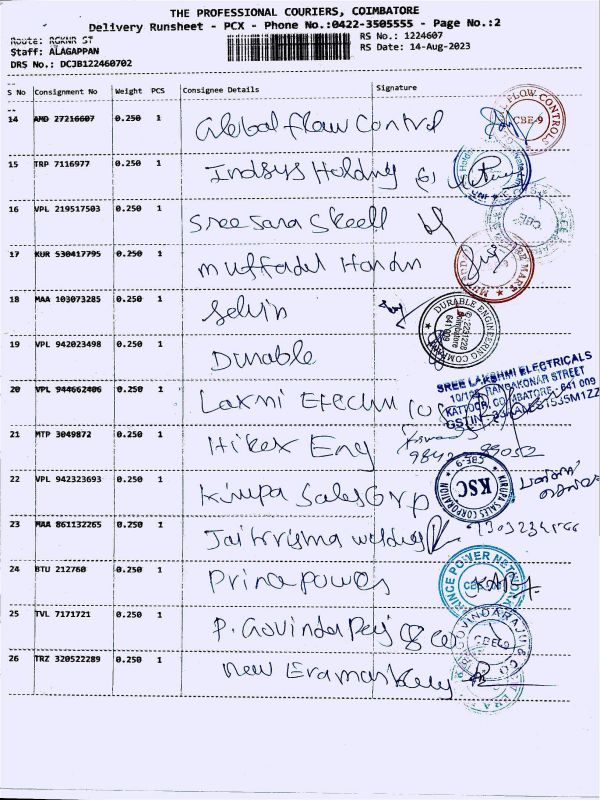 THE PROFESSIONAL COURIERS, COIMBATORE
Delivery Runsheet - PCX - Phone No.:0422-3505555 - Page No.:2
Route: RGKNR ST
RS No.: 1224607
Staff: ALAGAPPAN
RS Date: 14-Aug-2023
DRS No.: DCJB122460702
S No Consignment No Weight PCS Consignee Details Signature
14 AMD 27216607 0.250 1 Global Flow Control
FLOW CONTROLS CBE-9
15 TRP 7116977 0.250 1 Indsys Holding
16 VPL 219517503 0.250 1 Sree Sara Steell
17 KUR 530417795 0.250 1 Muffadal
18 MAA 103073285 0.250 1 Selvin
DURABLE ENGINEERING COMPANY
19 VPL 942023498 0.250 1 Durable
SREE LAKSHMI ELECTRICALS
RANGAKONAR STREET
KATTOOR, COIMBATORE - 641 009
20 VPL 944662406 0.250 1 Laxmi
21 MTP 3049872 0.250 1 Hikex Eng
22 VPL 942323693 0.250 1 Kirupa Sales Corp
KIRUPA SALES CORPORATION KSC CBE-9
23 MAA 861132265 0.250 1 Jaikrisma
24 BTU 212760 0.250 1 Prince power
PRINCE POWER
25 TVL 7171721 0.250 1 P. Govindaraj
26 TRZ 320522289 0.250 1 New Era